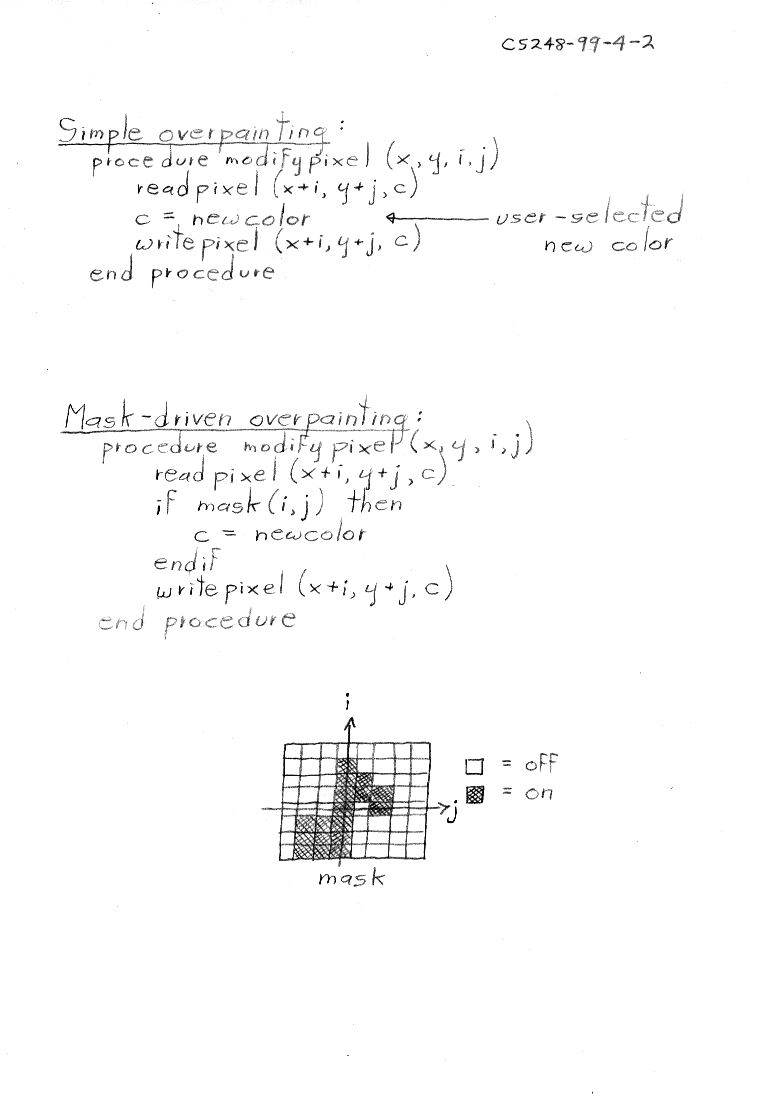 CS248-99-4-2
Simple overpainting:
procedure modifypixel (x, y, i, j)
readpixel (x+i, y+j, c)
c = newcolor ← user-selected
writepixel (x+i, y+j, c) new color
end procedure
Mask-driven overpainting:
procedure modifypixel (x, y, i, j)
readpixel (x+i, y+j, c)
if mask(i, j) then
c = newcolor
endif
writepixel (x+i, y+j, c)
end procedure
i
□ = off
■ = on
j
mask